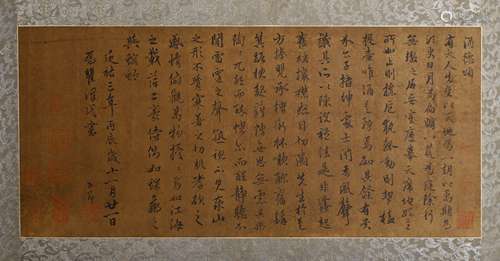 酒德頌
有大人先生以天地為一朝以萬期為
須臾日月為扃牖八荒為庭除行
無轍迹居無室廬幕天席地縱意
所如止則操卮執觚動則挈榼
提壺唯酒是務焉知其餘有貴
介公子搢紳處士聞吾風聲
議其所以陳說禮法是非蜂起
奮袂攘襟怒目切齒先生於是
方捧甖承槽銜杯漱醪奮髯
箕踞枕麴藉糟無思無慮其樂
陶陶兀然而醉怳爾而醒靜聽不
聞雷霆之聲熟視不見泰山
之形不覺寒暑之切肌嗜欲之
感情俯觀萬物擾擾焉如江海
之載浮萍二豪侍側焉如蜾蠃之
與螟蛉
延祐三年丙辰歲十一月廿一日
為
書
子昂